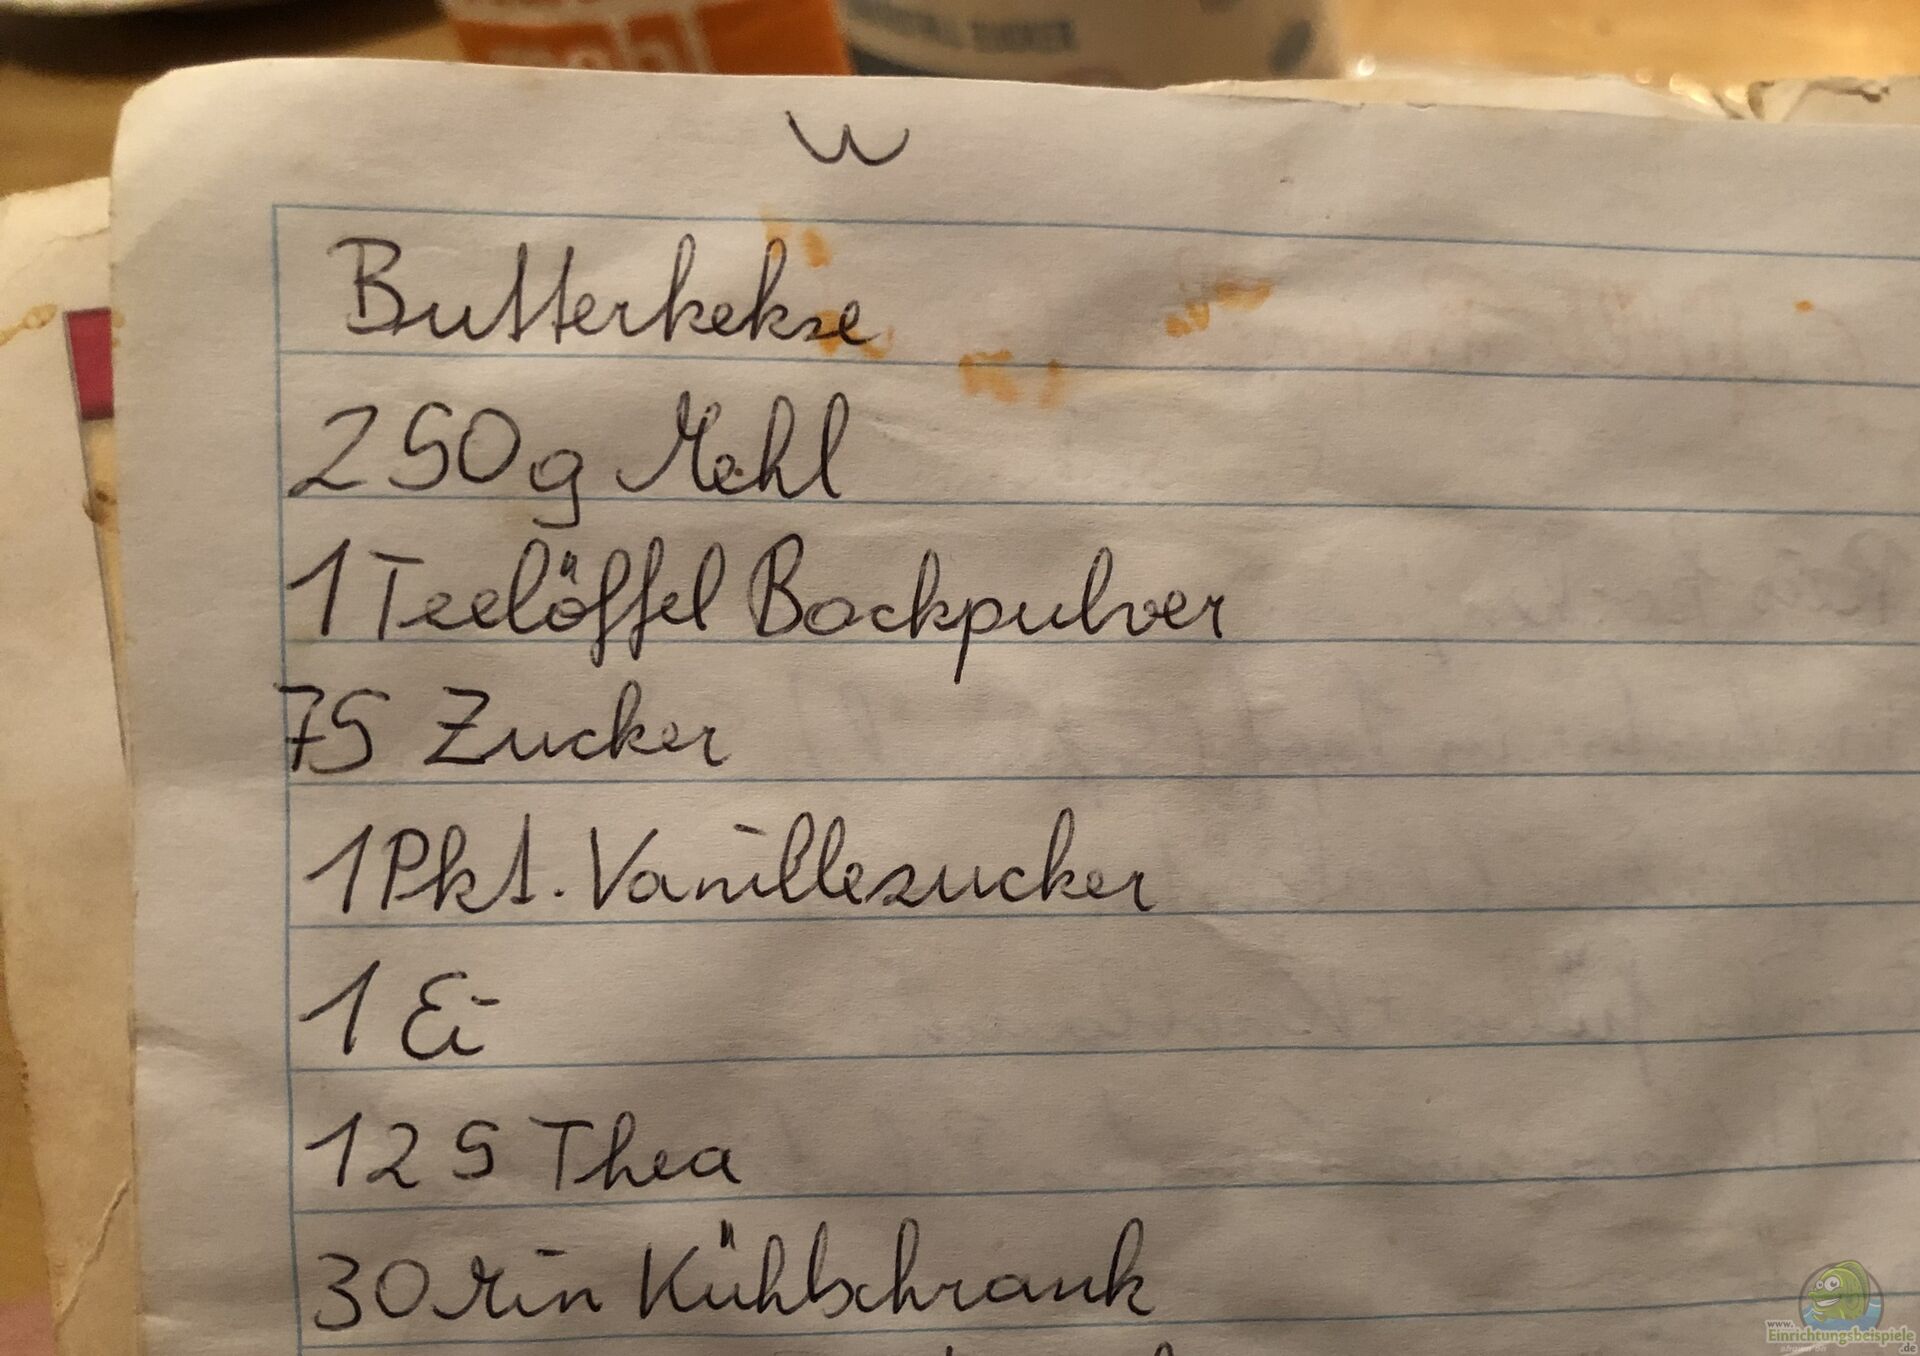 Mehl
ZUCKER
W
Butterkekse
250g Mehl
1 Teelöffel Backpulver
75 Zucker
1 Pkt. Vanillezucker
1 Ei
125 Thea
30 Min Kühlschrank
www.
Einrichtungsbeispiele
.de